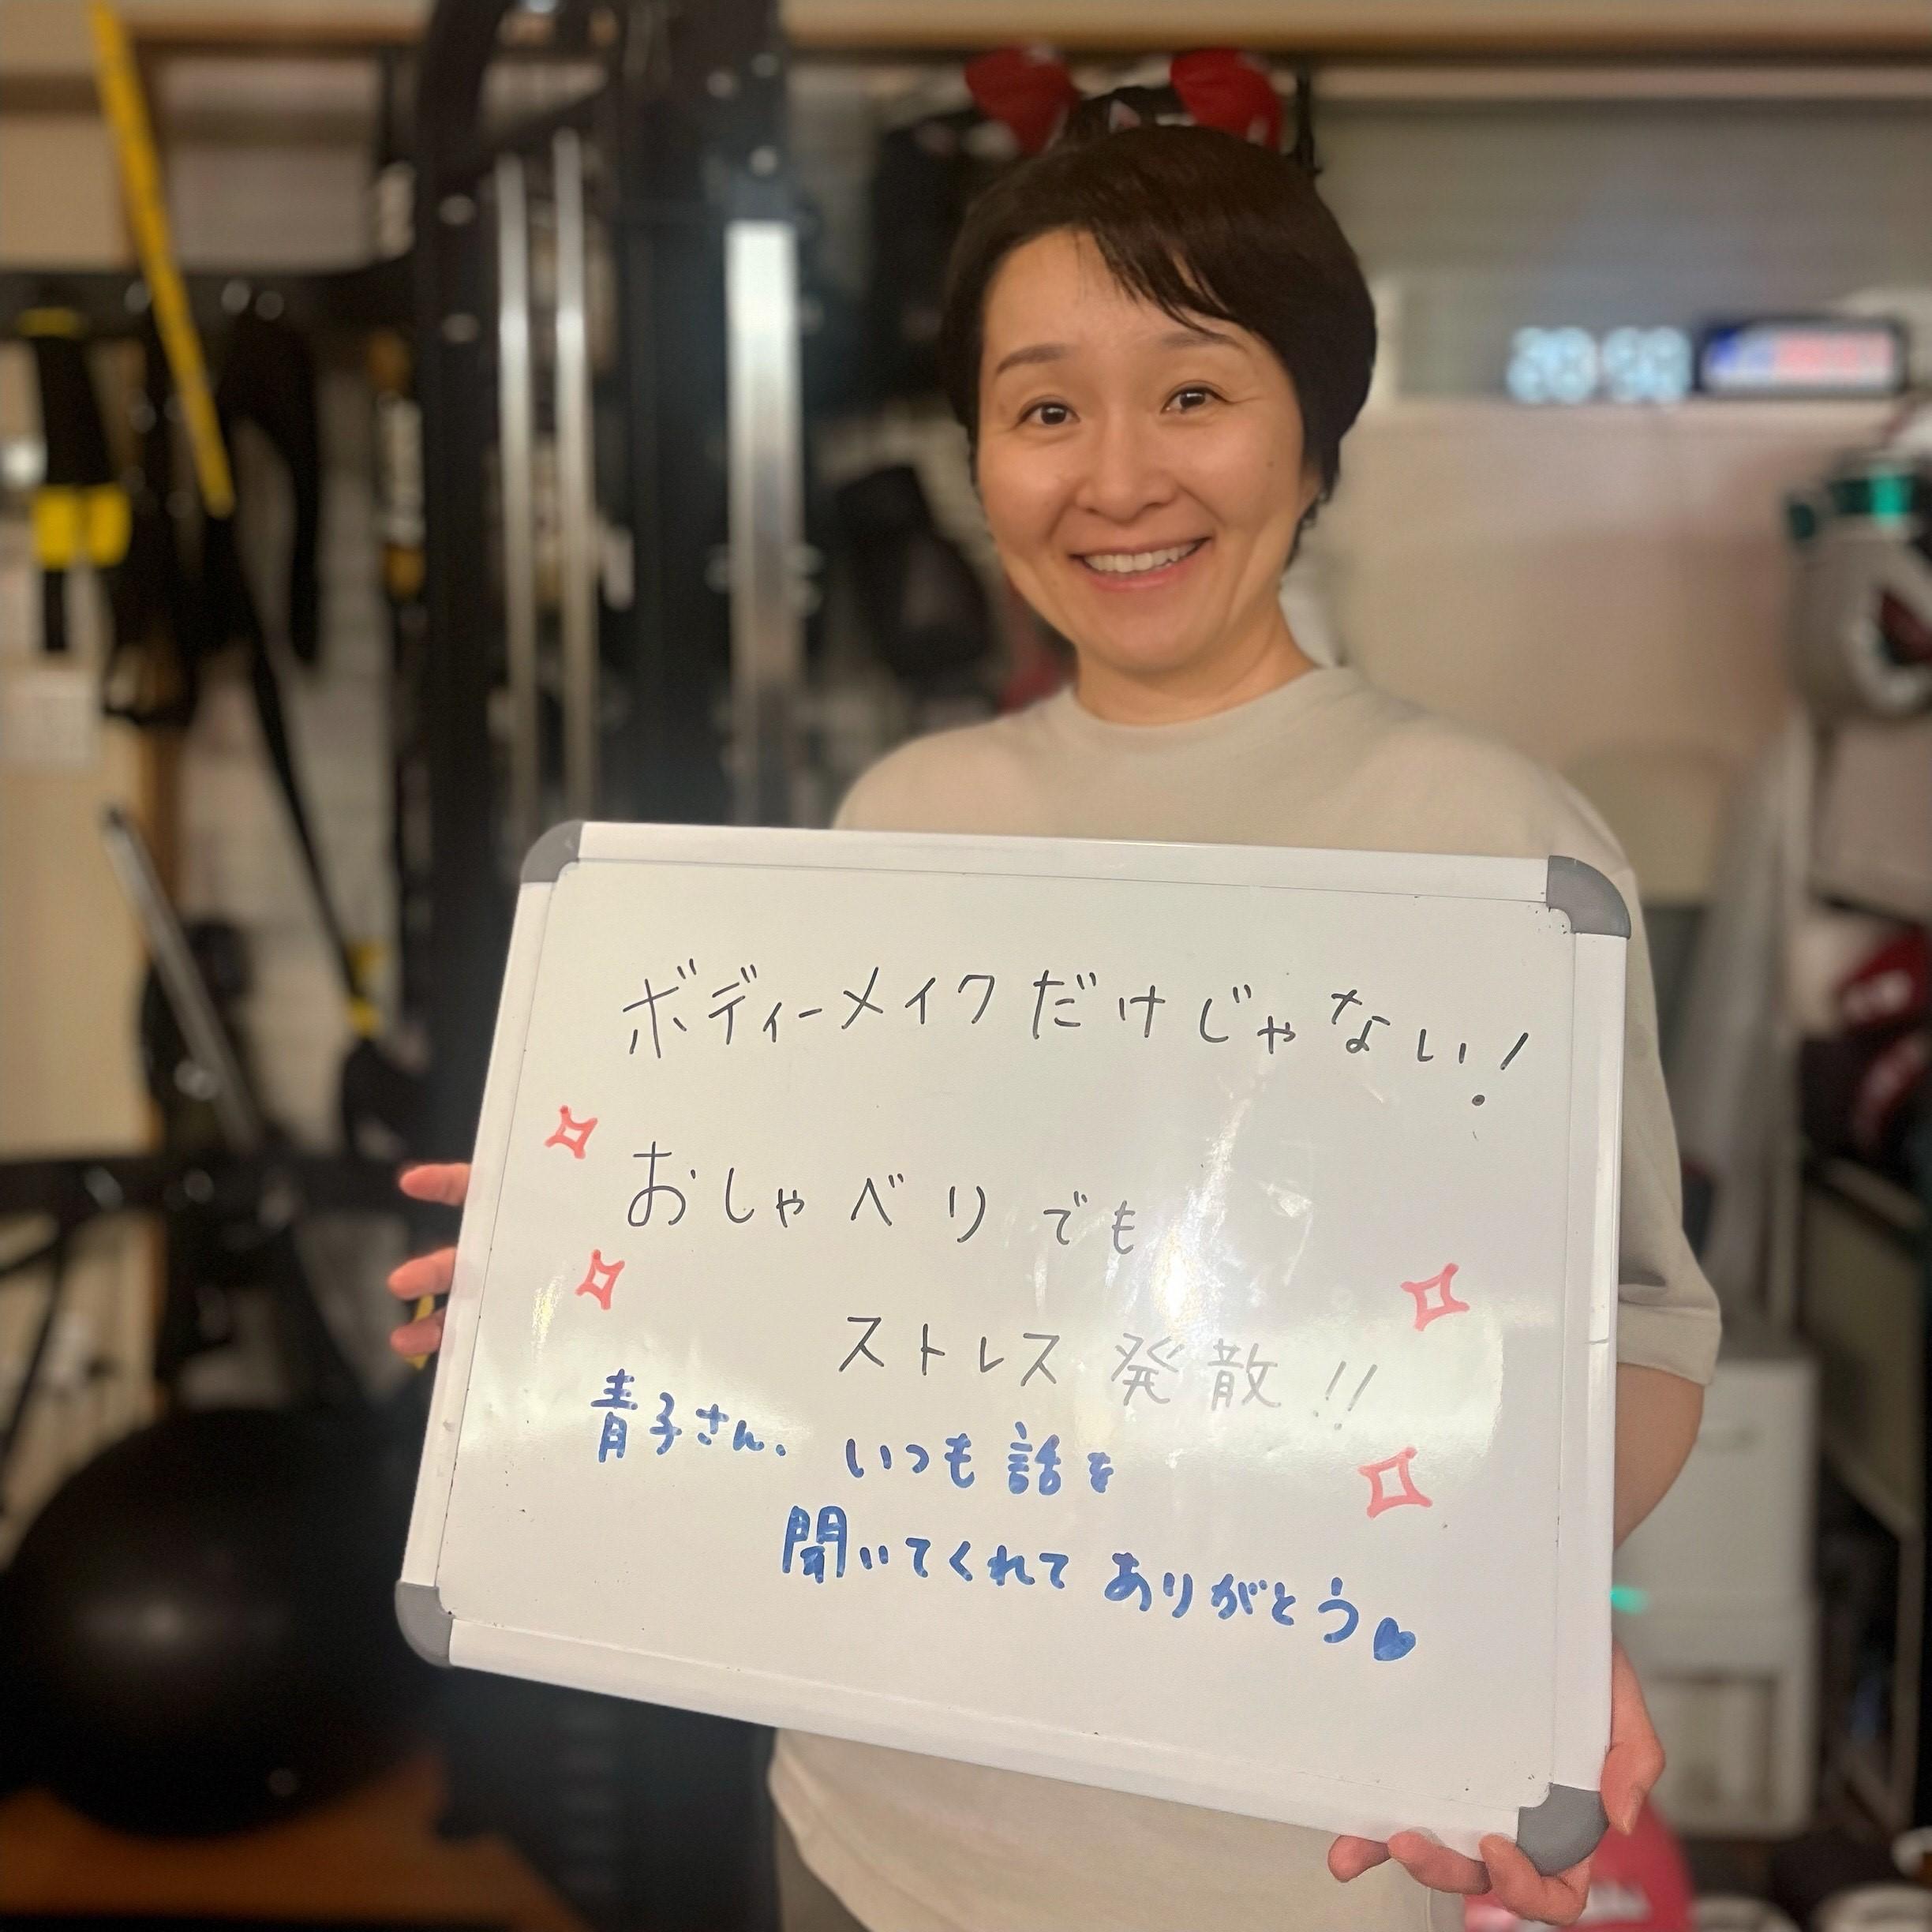 ボディーメイクだけじゃない!
おしゃべりでも
ストレス発散!!
青子さん、いつも話を
聞いてくれてありがとう♥